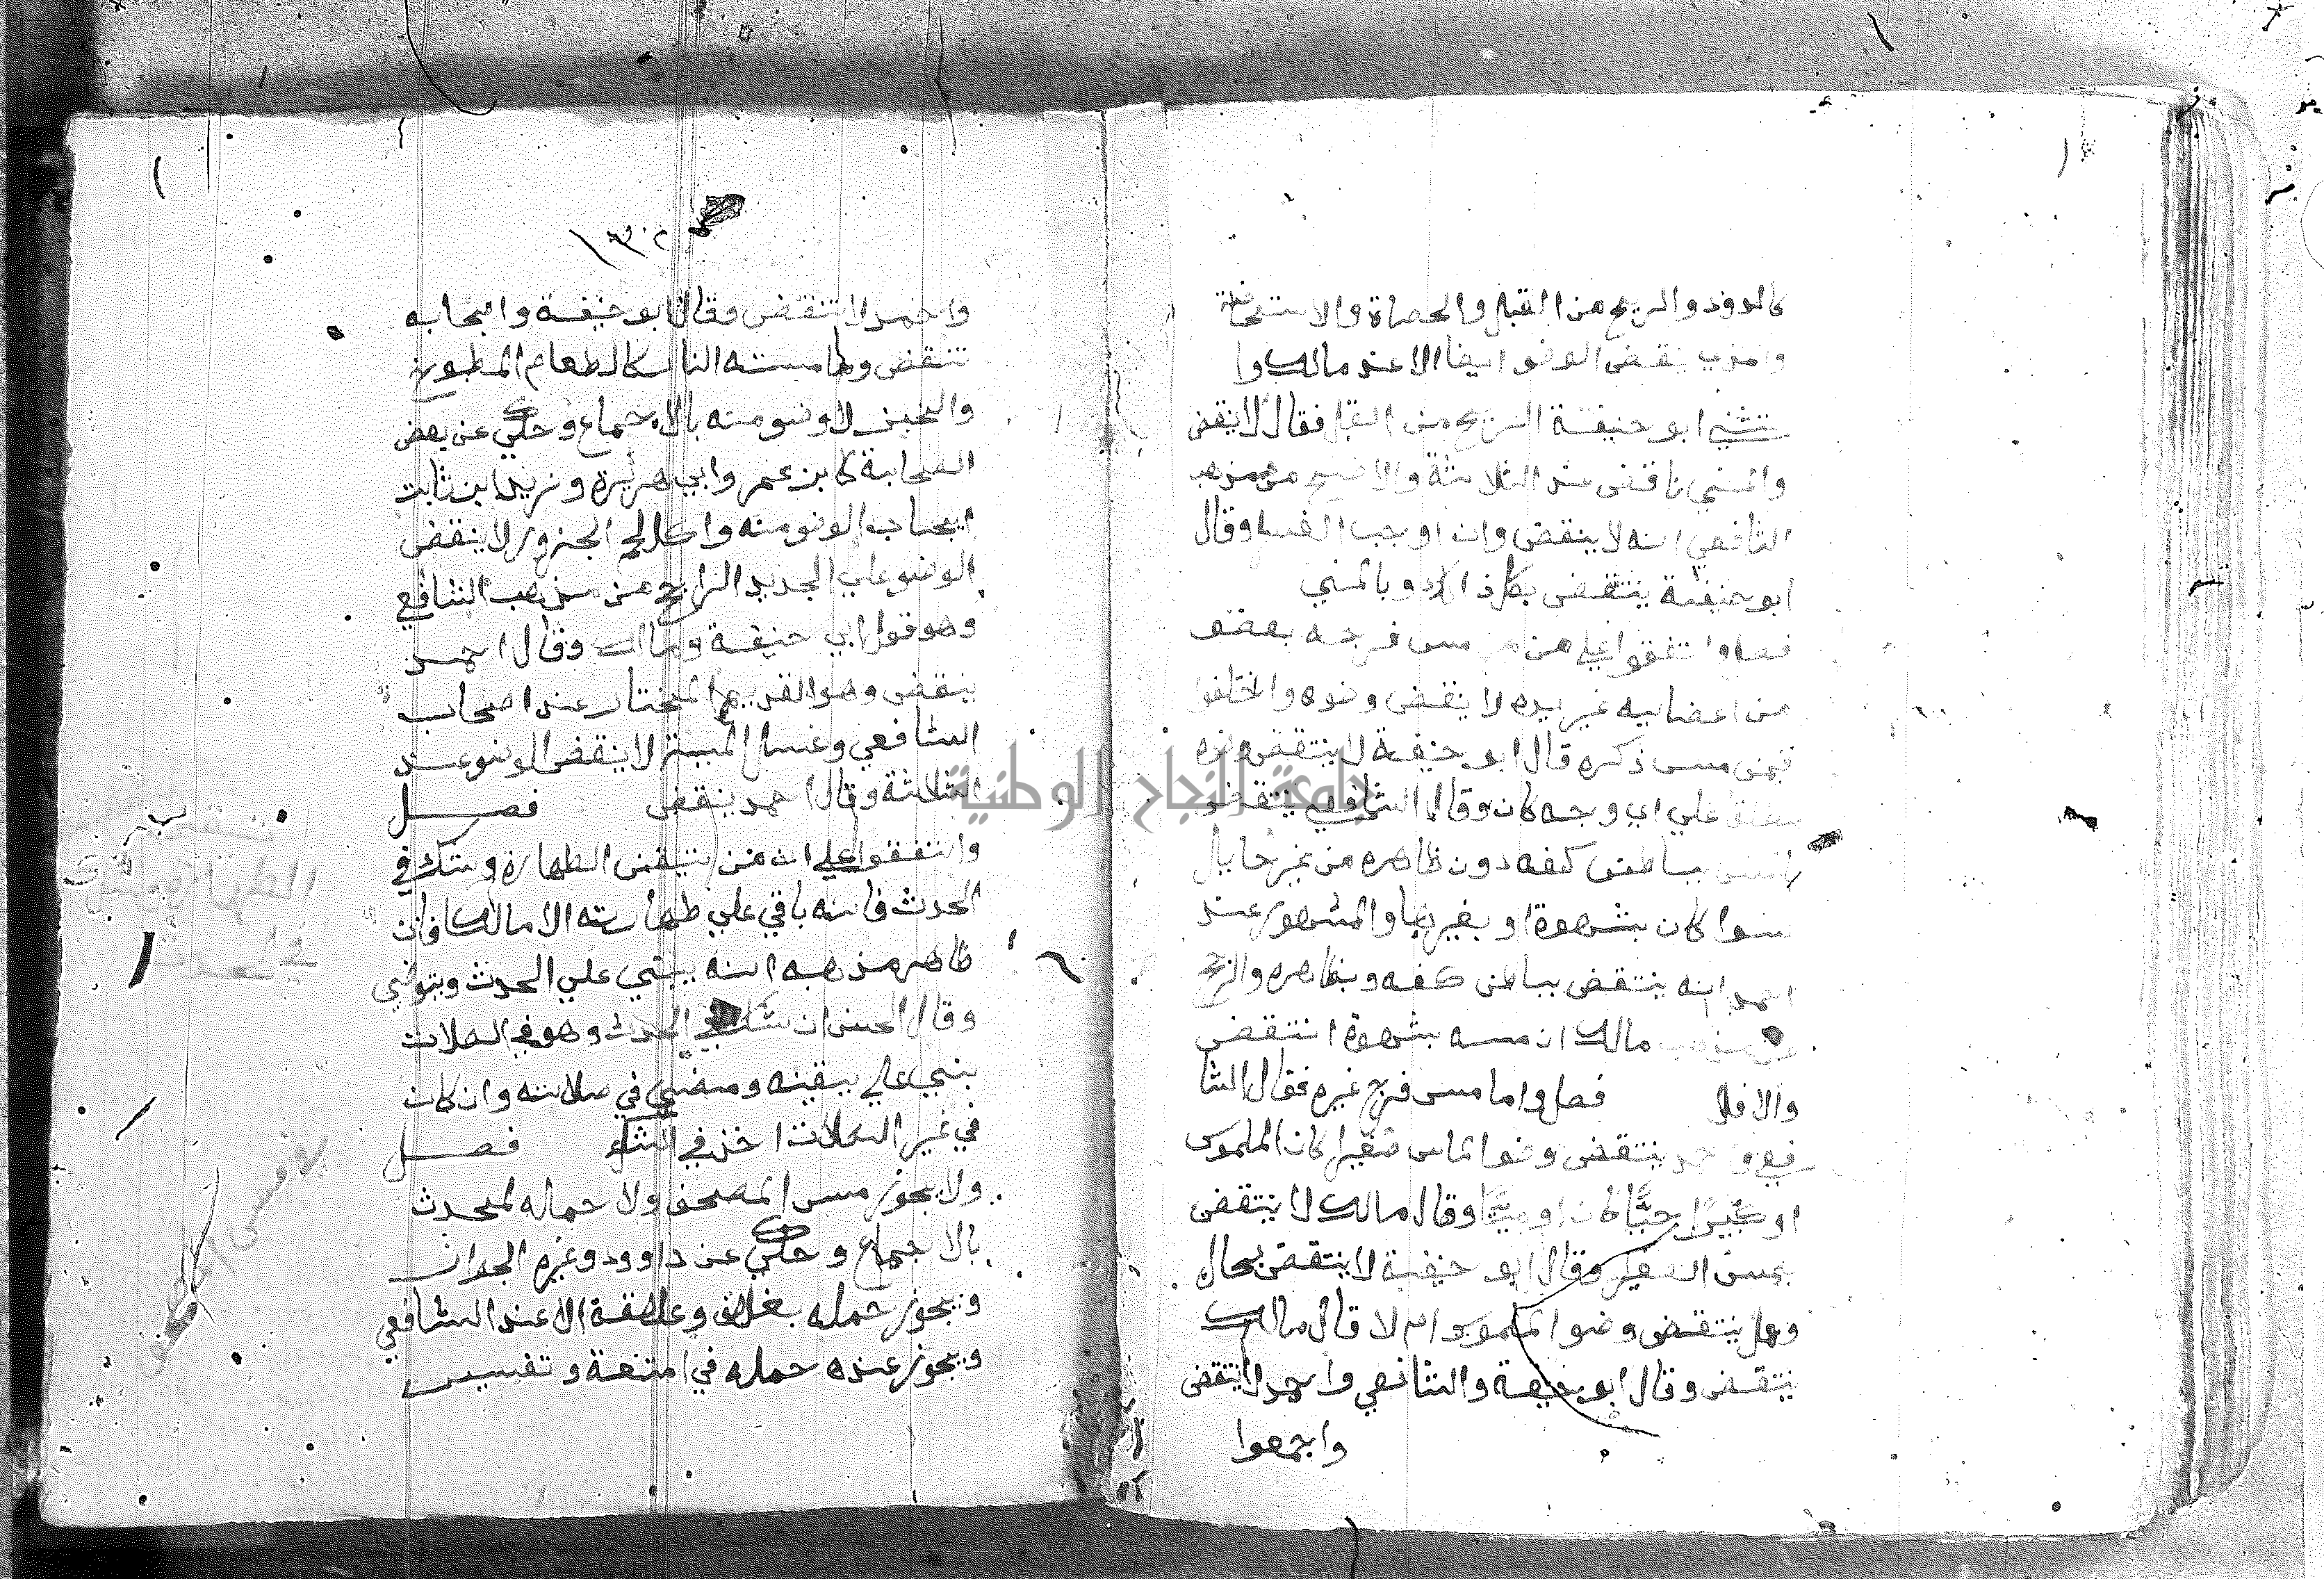 كالدود والريح من القبل والحصاة والاستحاضة
والمذي ينقض الوضوء ايضا الا عند مالك وا
ستثني ابو حنيفة الريح من القبل فقال لا ينقض
والمني ناقض عند الثلاثة والاصح من مذهب
الشافعي انه لا ينقض وان اوجب الغسل وقال
ابو حنيفة ينتقض بكل ذالك وبالمني
فصل واتفقوا علي من مس فرجه بعضو
من اعضايه غير يده لا ينقض وضوه واختلفوا
فيمن مس ذكره قال ابو حنيفة لا ينتقض وضوه
مطلقا علي اي وجه كان وقال الشافعي ينتقض
المس بباطن كفه دون ظاهره من غير حايل
سوا كان بشهوة او بغيرها والمشهور عند
احمد انه ينتقض بباطن كفه وبظاهره والراجح
من مذهب مالك ان مسه بشهوة انتقض
والا فلا فصل واما مس فرج غيره فقال الشا
فعي واحمد ينتقض وضوا الماس صغيرا كان الملموس
او كبيرا حيا كان او ميتا وقال مالك لا ينتقض
بمس الصغير وقال ابو حنيفة لا ينتقض بحال
وهل ينتقض وضوا الملموس ام لا قال مالك
ينتقض وقال ابو حنيفة والشافعي واحمد لا ينتقض
واجمعوا
١٣٠٢
واحمد لا تنقض وقال ابو حنيفة واصحابه
تنقض وما مسته النار كالطعام المطبوخ
والخبز لا وضو منه بالاجماع وحكي عن بعض
الصحابة كابن عمر وابي هريرة وزيد ابن ثابت
ايجاب الوضو منه واكل لحم الجزور لا ينقض
الوضو علي الجديد الراجح من مذهب الشافعي
وهو قول ابي حنيفة ومالك وقال احمد
ينقض وهو القديم المختار عند اصحاب
الشافعي وغسل الميت لا ينقض الوضو عند
الثلاثة وقال احمد ينقض فصل
واتفقوا علي ان من تيقن الطهارة وشك في
الحدث فانه باقي علي طهارته الا مالك فان
ظاهر مذهبه انه يبني علي الحدث ويتوضي
وقال الحسن ان شك في الحدث وهو في الصلات
بني علي يقينه ومضي في صلاته وان كان
في غير الصلات اخذ في الشك فصل
ولا يجوز مس المصحف ولا حمله لمحدث
بالاجماع وحكي عن داوود وغيره الجواز
ويجوز حمله بغلاف وعلاقة الا عند الشافعي
ويجوز عنده حمله في امتعة وتفسير
جامعة النجاح الوطنية